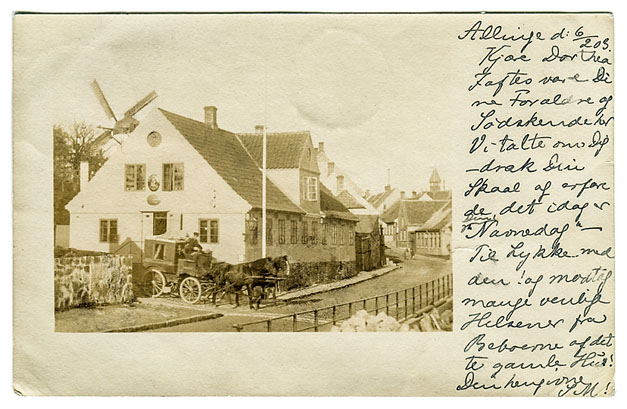 Allinge d: 6/2 03.
Kjære Dorthea
I aftes vare Di
ne Forældre og
Sødskende her
Vi talte om Dig
– drak Din
Skaal og erfore
de, det idag er
Din "Navnedag" –
Til Lykke med
den! og modtag
mange venlige
Hilsener fra
Beboerne af det
gamle Hus!
Din hengivne
S.M!